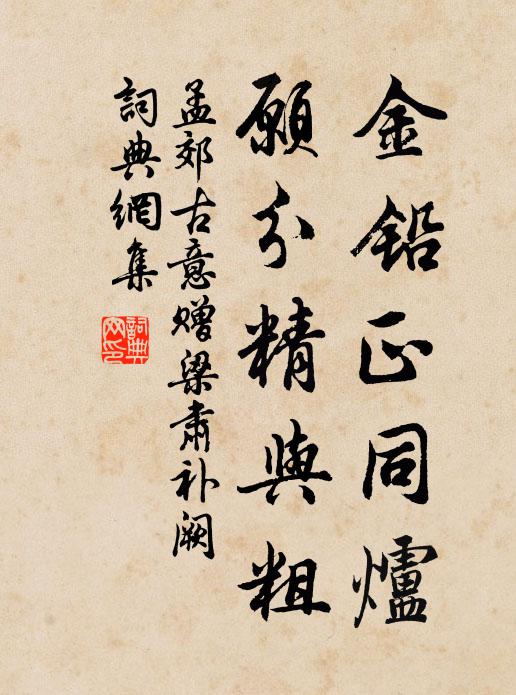 金鉛正同爐
願分精與粗
孟郊古意赠梁肅补阙
詞典網集
詞典网印